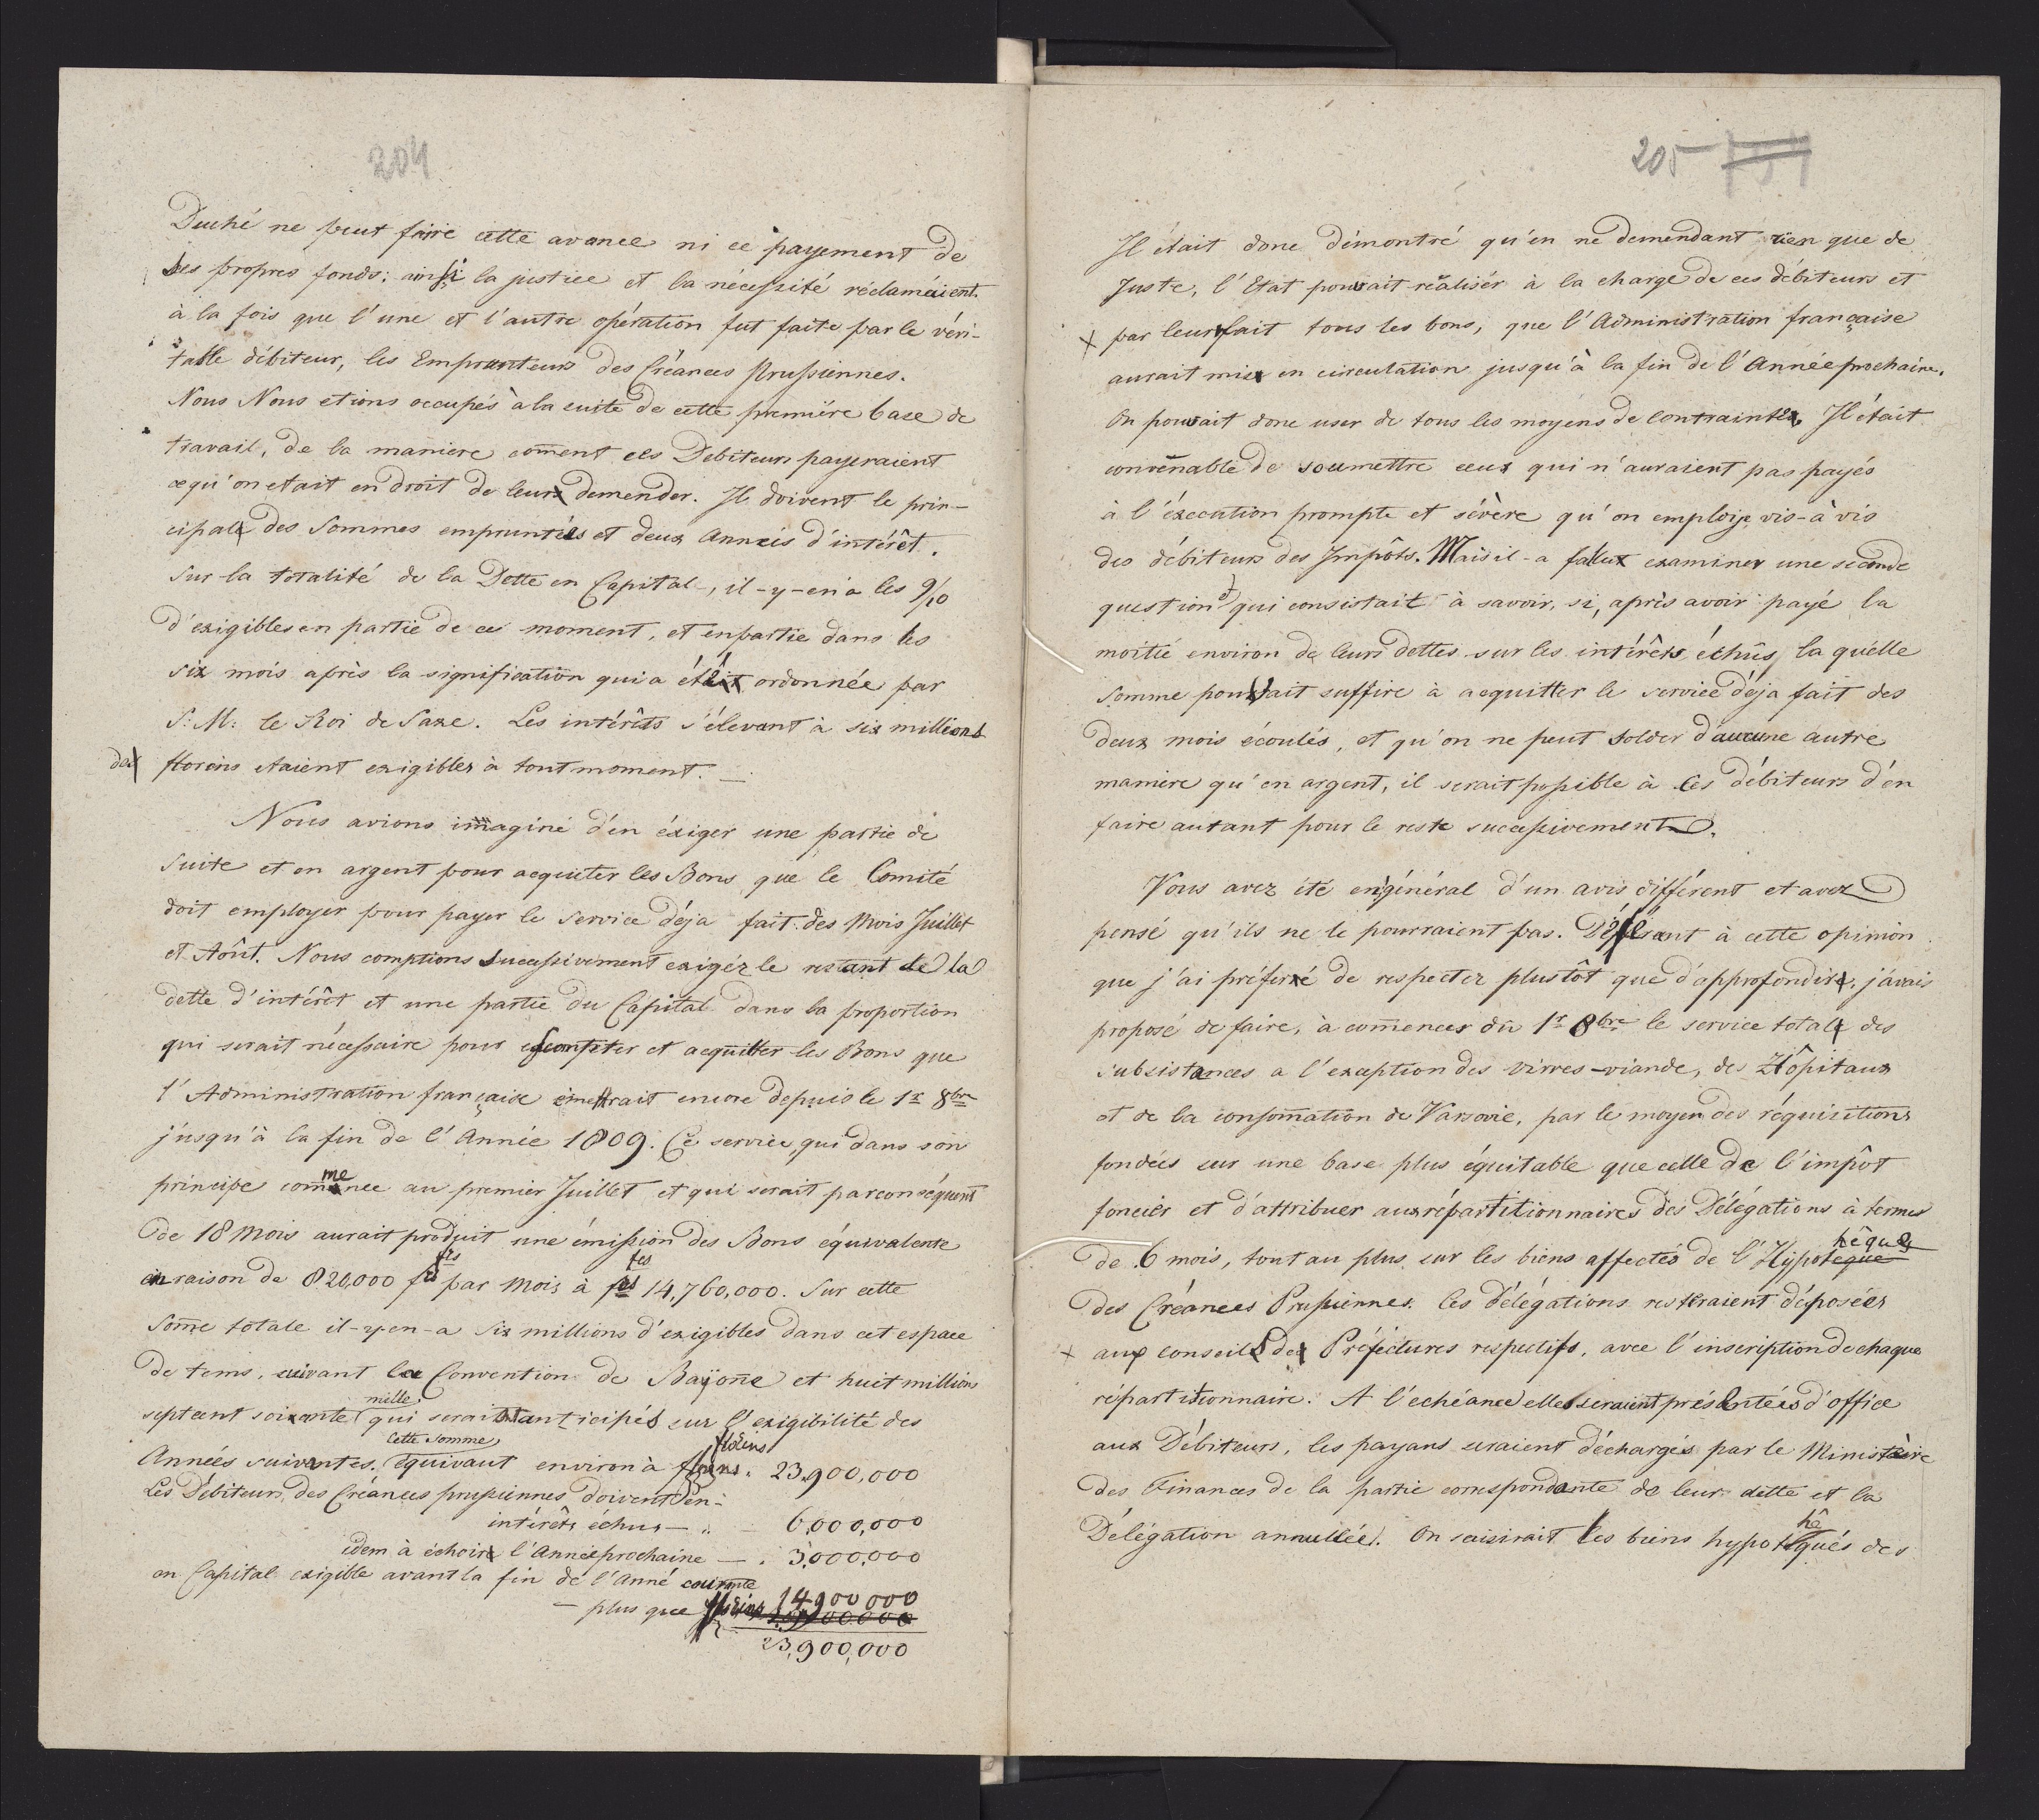 204
Duché ne peut faire cette avance ni ce payement de
ses propres fonds; ainsi la justice et la nécessité réclamaient
à la fois que l'une et l'autre opération fut faite par le véri-
table débiteur, les Emprunteurs des Créances Prussiennes.
Nous Nous etions occupés à la suite de cette premiére base de
travail, de la maniere coment ces Debiteurs payeraient
ce qu'on etait en droit de leur demender. Il doivent le prin-
cipal des Sommes empruntées et deux Années d'intérêt.
Sur la totalité de la Dette en Capital, il-y-en a les 9/10
d'exigibles en partie de ce moment, et en partie dans les
six mois après la signification qui a été ordonnée par
S: M: le Roi de Saxe. Les intérêts s'élevant à six millions
de florins etaient exigibles à tout moment. —
Nous avions imaginé d'en éxiger une partie de
suite et en argent pour acquiter les Bons que le Comité
doit employer pour payer le service déja fait des Mois Juillet
et Aôut. Nous comptions successivement exigér le restant de la
dette d'intérêt et une partie du Capital dans la proportion
qui serait nécessaire pour escompter et acquitter les Bons que
l'Administration française émettrait encore depuis le 1r 8bre
jusqu'à la fin de l'Année 1809. Ce service, qui dans son
principe commence au premier Juillet et qui serait par conséquent
de 18 Mois aurait produit une émission des Bons équivalente
en raison de 820,000 frcs par Mois à fcs 14,760,000. Sur cette
Some totale il-y-en-a six millions d'exigibles dans cet espace
de tems, suivant la Convention de Bayone et huit millions
septcent soixante mille qui seraient anticipés sur l'exigibilité des
Années suivantes. Cette somme équivaut environ à florins. 23,900,000
Les Débiteurs des Créances prussiennes doivent en
intérêts échus — . 6,000,000
idem à échoir l'Année prochaine — . 3,000,000
en Capital exigible avant la fin de l'Anné courante
— plus que florins 14,900,000
23,900,000
205
Il était donc démontré qu'en ne demendant rien que de
Juste, l'Etat pouvait réalisér à la charge de ces débiteurs et
× par leur fait tous les bons, que l'Administration française
aurait mis en circulation jusqu'à la fin de l'Année prochaine.
On pouvait donc user de tous les moyens de contrainte. Il était
convenable de soumettre ceux qui n'auraient pas payés
à l'éxecution prompte et sévère qu'on emploie vis-à vis
des débiteurs des Impôts. Mais il-a fallut examiner une seconde
question qui consistait à savoir, si, après avoir payé la
moitié environ de leurs dettes sur les intérêts échûs, la quélle
somme pouvait suffire à acquitter le service déja fait des
deux mois écoulés, et qu'on ne peut solder d'aucune autre
maniere qu'en argent, il serait possible à ces débiteurs d'en
faire autant pour le reste successivement.
Vous avez été en général d'un avis différent et avez
pensé qu'ils ne le pourraient pas. Déférant à cette opinion
que j'ai préferé de respecter plustôt que d'approfondir, j'avais
proposé de faire, à comencer du 1r 8bre le service total des
subsistances a l'exception des vivres-viande, des Hôpitaux
et de la consomation de Varsovie, par le moyen des réquisitions
fondées sur une base plus équitable que celle de l'impôt
foncier et d'attribuer aux répartitionnaires des Délégations à termes
de 6 mois, tout au plus, sur les biens affectés de l'Hypotèque thêque
des Créances Prussiennes. Ces délégations resteraient déposées
× aux conseils de Préfectures respectifs, avec l'inscription de chaque
répartitionnaire. A l'echéance elles seraient présentées d'office
aux Débiteurs, les payans seraient déchargés par le Ministère
des Finances de la partie correspondante de leur dette et la
Délégation annullée. On saisirait les biens hypothêqués des